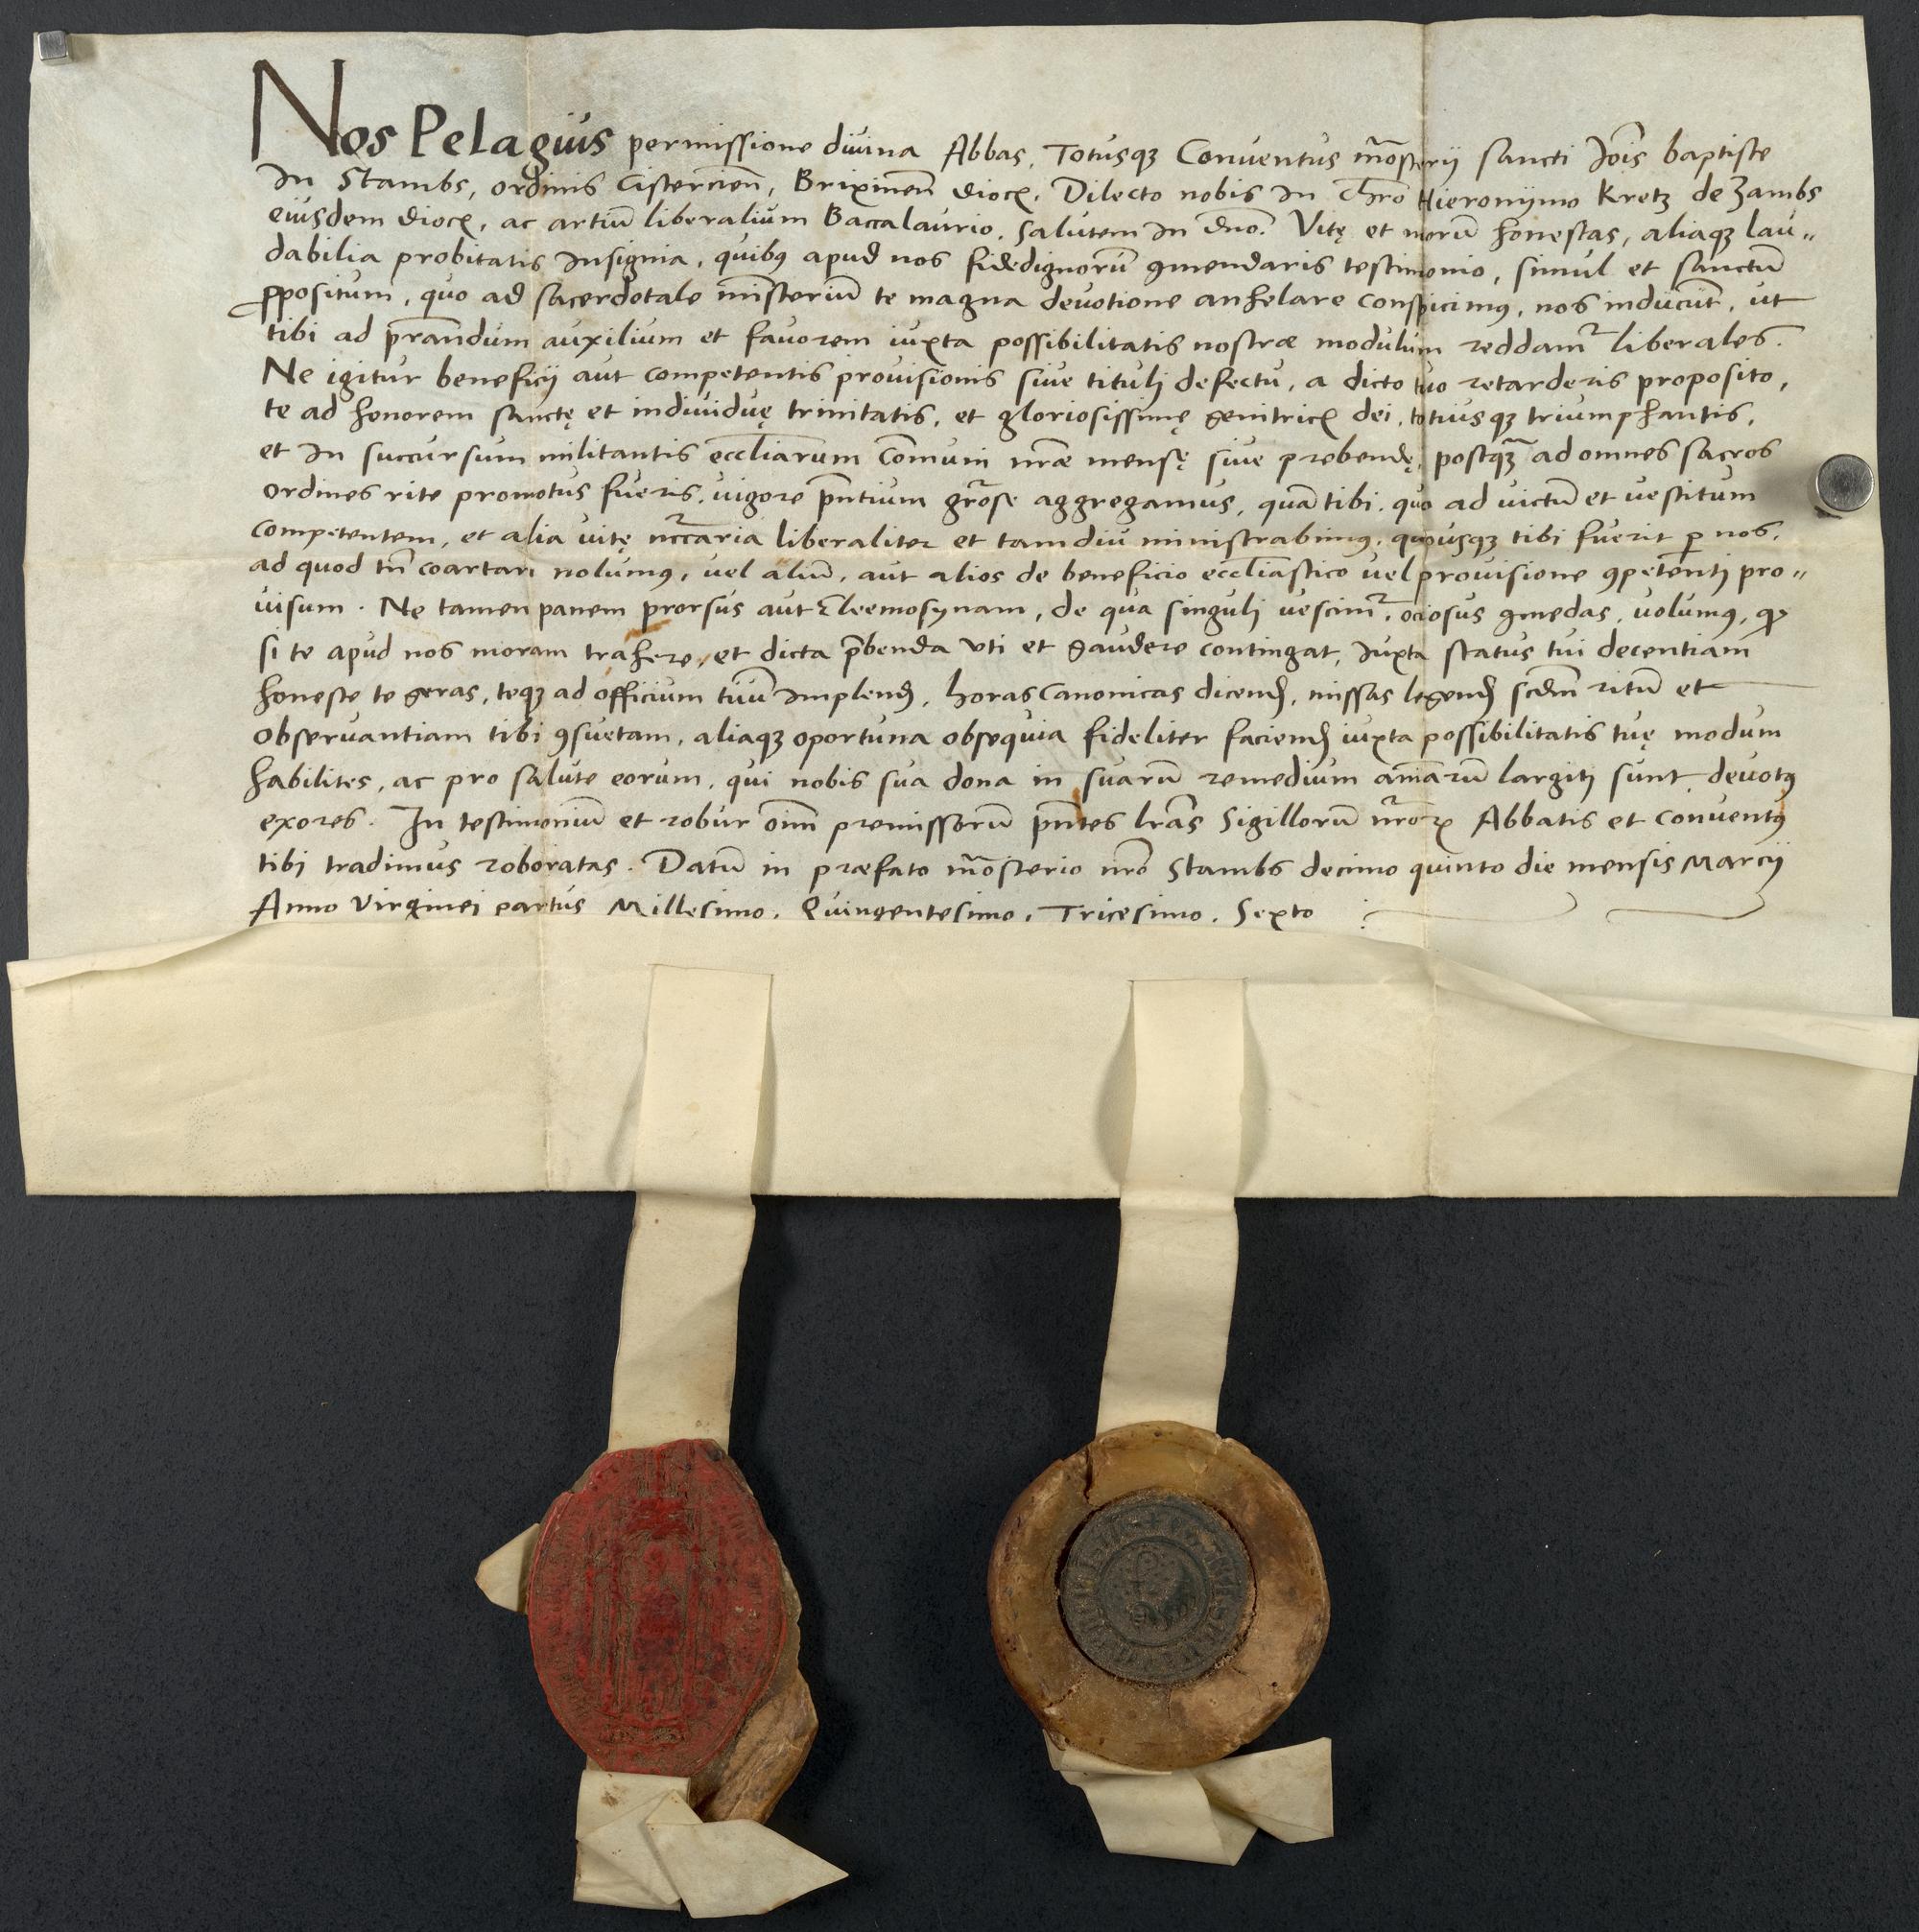 Nos Pelagius permissione divina Abbas, Totusqꝫ Conventus mõsterij sancti Joĩs baptiste
In Stambs, ordinis Cistercieñ, Brixineñ dioc̃. Dilecto nobis in Chr̃o Hieronijmo Kretz de Zambs
eiusdem dioc̃, ac artiũ liberalium Baccalaurio. Salutem in dño. Vitę et morũ honestas, aliaqꝫ lau„
dabilia probitatis insignia, quibꝰ apud nos fidedignorũ ꝯmendaris testimonio, simul et sanctũ
ꝓpositum, quo ad sacerdotale minsteriũ te magna devotione anhelare conspicimꝰ, nos inducũt, ut
tibi ad p̃randum auxilium et favorem iuxta possibilitatis nostræ modulum reddamᷣ liberales.
Ne igitur beneficij aut competentis provisionis sive tituli defectu, a dicto tuo retarderis proposito,
te ad honorem sanctę et individuę trinitatis, et gloriosissimę genitric̃ dei, totiusqꝫ triumphantis,
et in succursum militantis eccl̃iarum Com̃uni nr̃æ mensę sive prebendę, postqꝫ̃ ad omnes sacros
ordines rite promotus fueris, vigore p̃ntium gr̃ose aggregamus, quã tibi, quo ad victũ et vestitum
competentem, et alia vitę nc̃caria liberaliter et tamdiu ministrabimꝰ, quousqꝫ tibi fuerit ꝑ nos,
ad quod tñ coartari nolumꝰ, vel aliũ, aut alios de beneficio eccl̃iastico vel provisione ꝯpetenti pro„
visum. Ne tamen panem prorsus aut Eleemosynam, de qua singuli vescimᷣ, ociosus ꝯmedas, volumꝰ, ꝙ
si te apud nos moram trahere, et dicta p̃benda uti et gaudere contingat, Juxta status tui decentiam
honeste te geras, teqꝫ ad officium tuũ implend̃, horas canonicas dicend̃, missas legend̃ scd̃m ritũ et
observantiam tibi ꝯsuetam, aliaqꝫ oportuna obsequia fideliter faciend̃ iuxta possibilitatis tuę modum
habilites, ac pro salute eorum, qui nobis sua dona in suarũ remedium aĩarũ largiti sunt, devotꝰ
exores. In testimoniũ et robur oĩm premissorũ p̃ntes lr̃as Sigillorũ nr̃oꝝ Abbatis et conventꝰ
tibi tradimus roboratas. Datũ in præfato mõsterio nr̃o Stambs decimo quinto die mensis Marcij
Anno Virginei partus Millesimo. Quingentesimo. Tricesimo. Sexto :